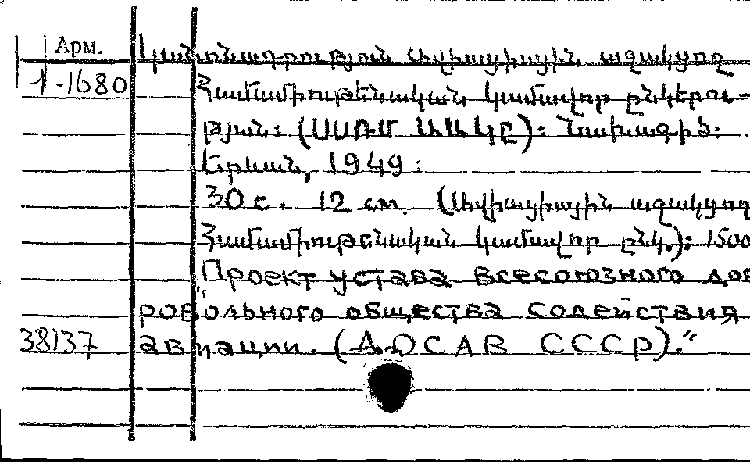 Арм.
1-1680
Կանոնադրություն Ավիացիային աջակցող
Համամիութենական կամավոր ընկերու-
թյան: (ՍՍՌՄ ԱԱԿԸ): Նախագիծ:
Երևան, 1949:
30 с. 12 см. (Ավիացիային աջակցող
Համամիութենական կամավոր ընկ.): 1500
"Проект устава всесоюзного доб
ровольного общества содействия
38137 авиации. (ДОСАВ СССР)."